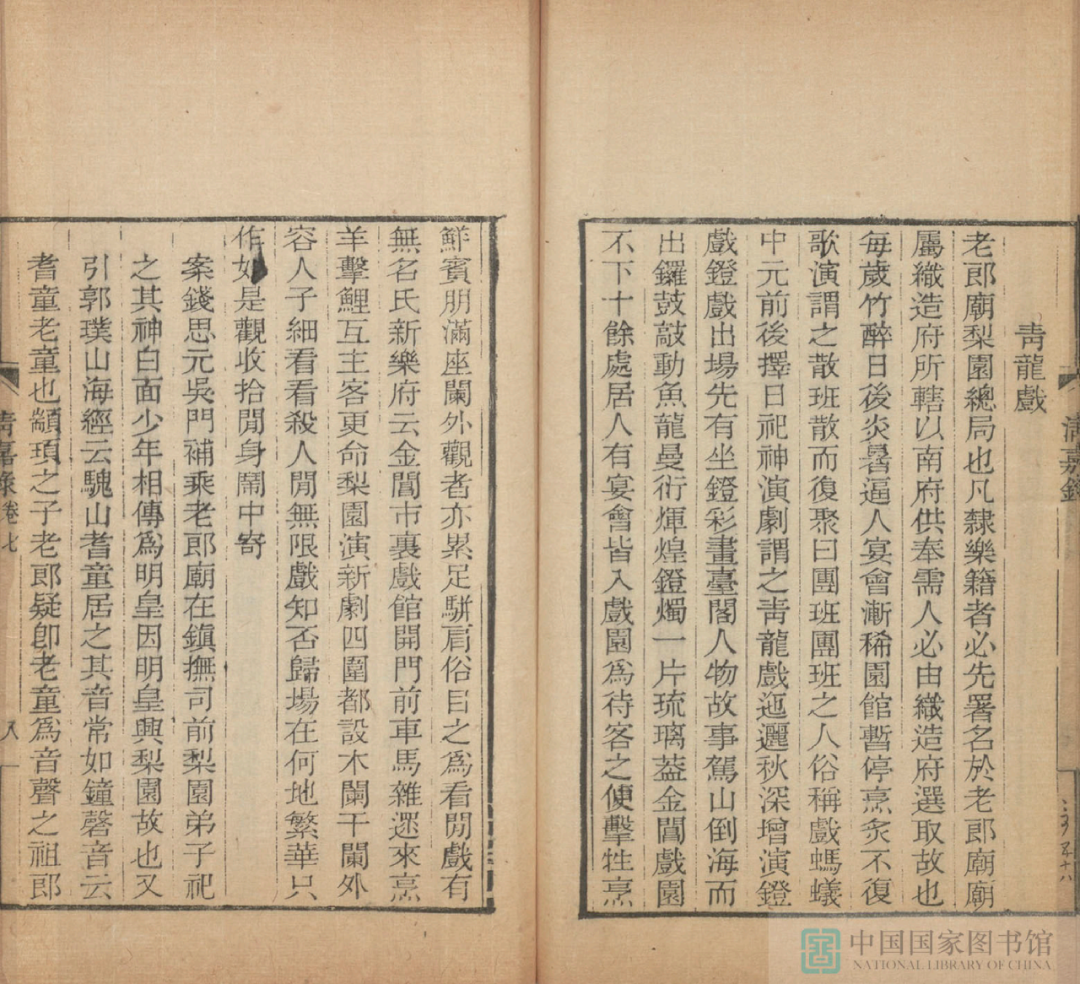 青龍戲
老郎廟棃園總局也凡隸樂籍者必先署名於老郎廟廟
屬織造府所轄以南府供奉需人必由織造府選取故也
每歲竹醉日後炎暑逼人宴會漸稀園館暫停烹炙不復
歌演謂之散班散而復聚曰團班團班之人俗稱戲螞蟻
中元前後擇日祀神演劇謂之青龍戲迤邐秋深增演鐙
戲鐙戲出場先有坐鐙彩畫臺閣人物故事駕山倒海而
出鑼鼓敲動魚龍曼衍煇煌鐙燭一片琉璃葢金閶戲園
不下十餘處居人有宴會皆入戲園爲待客之便擊牲烹
鮮賓朋滿座闌外觀者亦累足駢肩俗目之爲看閒戲有
無名氏新樂府云金閶市裏戲館開門前車馬雜遝來烹
羊擊鯉互主客更命棃園演新劇四圍都設木闌干闌外
容人子細看看殺人閒無限戲知否歸場在何地繁華只
作如是觀收拾閒身鬧中寄
案錢思元吳門補乘老郎廟在鎮撫司前棃園弟子祀
之其神白面少年相傳爲明皇因明皇興棃園故也又
引郭璞山海經云騩山耆童居之其音常如鐘磬音云
耆童老童也顓頊之子老郎疑卽老童爲音聲之祖郎
清嘉錄
清嘉錄卷七
八
中国国家图书馆
NATIONAL LIBRARY OF CHINA